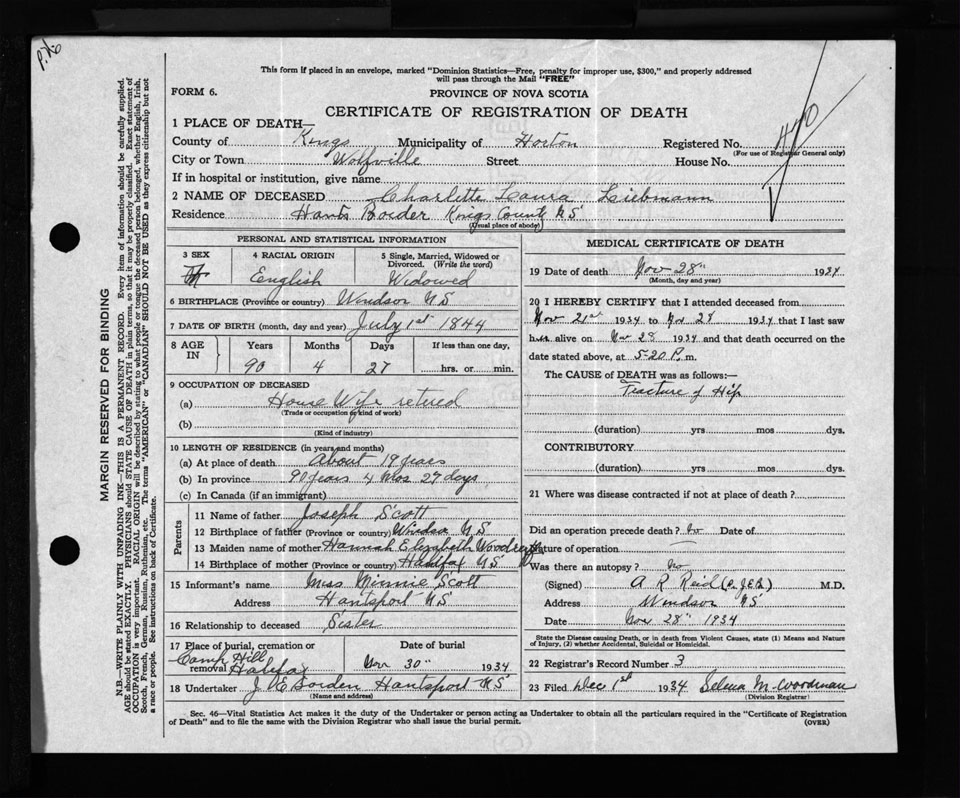 P.No
This form if placed in an envelope, marked "Dominion Statistics—Free, penalty for improper use, $300," and properly addressed
will pass through the Mail "FREE"
FORM 6.
PROVINCE OF NOVA SCOTIA
CERTIFICATE OF REGISTRATION OF DEATH
1 PLACE OF DEATH—
County of Kings Municipality of Horton Registered No. 440
(For use of Registrar General only)
City or Town Wolfville Street House No.
If in hospital or institution, give name
2 NAME OF DECEASED Charlette Laura Liebmann
Residence Hants Border Kings County N S
(Usual place of abode)
PERSONAL AND STATISTICAL INFORMATION
3 SEX 4 RACIAL ORIGIN 5 Single, Married, Widowed or
Divorced. (Write the word)
English Widowed
6 BIRTHPLACE (Province or country) Windsor N S
7 DATE OF BIRTH (month, day and year) July 1st 1844
8 AGE IN Years Months Days If less than one day,
90 4 27 hrs. or min.
9 OCCUPATION OF DECEASED
(a) House Wife retered
(Trade or occupation or kind of work)
(b)
(Kind of industry)
10 LENGTH OF RESIDENCE (in years and months)
(a) At place of death About 19 years
(b) In province 90 years 4 Mos 27 days
(c) In Canada (if an immigrant)
Parents
11 Name of father Joseph Scott
12 Birthplace of father (Province or country) Windsor N S
13 Maiden name of mother Hannah Elizabeth
14 Birthplace of mother (Province or country) Halifax N S
15 Informant's name Miss Minnie Scott
Address Hantsport N S
16 Relationship to deceased Sister
17 Place of burial, cremation or removal Camp Hill Halifax
Date of burial
Nov 30" 1934
18 Undertaker J E Borden Hantsport N S
(Name and address)
MEDICAL CERTIFICATE OF DEATH
19 Date of death Nov 28" 1934
(Month, day and year)
20 I HEREBY CERTIFY that I attended deceased from
Nov 21st 1934 to Nov 28 1934 that I last saw
her alive on Nov 28 1934 and that death occurred on the
date stated above, at 5-20 P. m.
The CAUSE of DEATH was as follows:—
Fracture of Hip
(duration) yrs mos dys.
CONTRIBUTORY
(duration) yrs mos dys.
21 Where was disease contracted if not at place of death?
Did an operation precede death? No Date of
Nature of operation —
Was there an autopsy? No
(Signed) A R Reid M.D.
Address Windsor N S
Date Nov 28" 1934
State the Disease causing Death, or in death from Violent Causes, state (1) Means and Nature
of Injury, (2) whether Accidental, Suicidal or Homicidal.
22 Registrar's Record Number 3
23 Filed Dec 1st 1934 Selena M. Woodman
(Division Registrar)
Sec. 46—Vital Statistics Act makes it the duty of the Undertaker or person acting as Undertaker to obtain all the particulars required in the "Certificate of Registration
of Death" and to file the same with the Division Registrar who shall issue the burial permit.
(OVER)
MARGIN RESERVED FOR BINDING
N.B.—WRITE PLAINLY WITH UNFADING INK—THIS IS A PERMANENT RECORD. Every item of information should be carefully supplied.
AGE should be stated EXACTLY. PHYSICIANS should STATE CAUSE OF DEATH in plain terms, so that it may be properly classified. Exact statement of
OCCUPATION is very important. RACIAL ORIGIN will be described by stating to what people or tongue the deceased person belonged, whether English, Irish,
Scotch, French, German, Russian, Ruthenian, etc. The terms "AMERICAN" or "CANADIAN" SHOULD NOT BE USED as they express citizenship but not
a race or people. See instructions on back of Certificate.